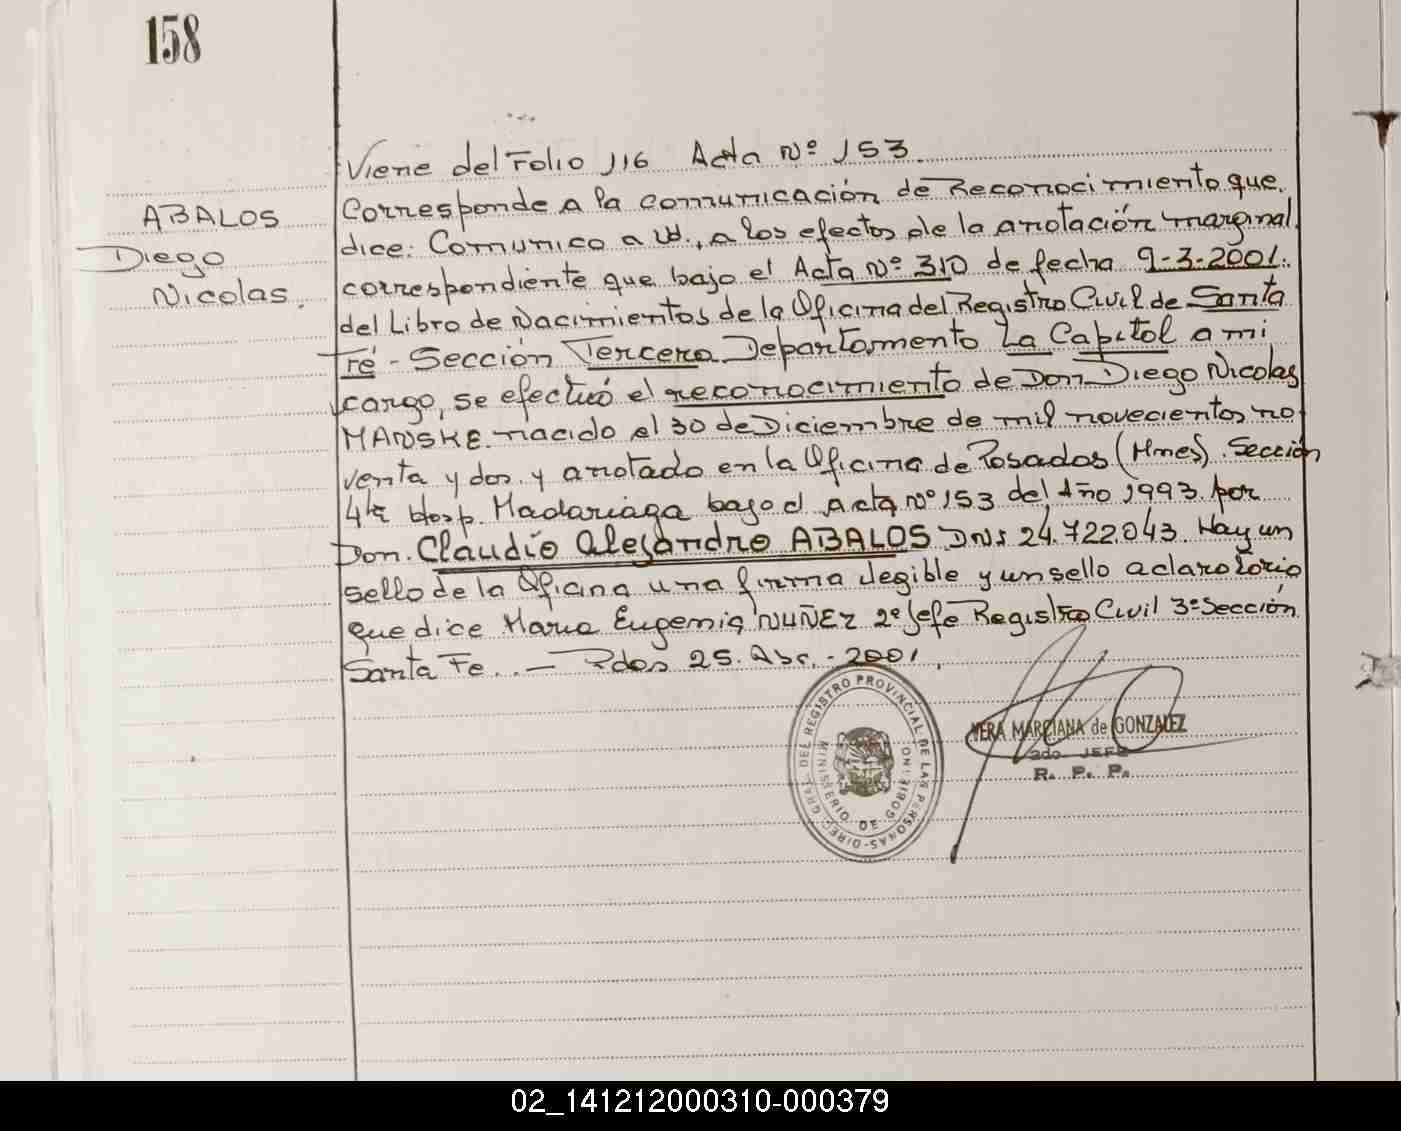 158
Viene del Folio 116 Acta Nº 153.
ABALOS
Diego
Nicolas.
Corresponde a la comunicación de Reconocimiento que
dice: Comunico a Ud., a los efectos de la anotación marginal
correspondiente que bajo el Acta Nº 310 de fecha 9-3-2001.
del Libro de Nacimientos de la Oficina del Registro Civil de Santa
Fé - Sección Tercera Departamento La Capital a mi
cargo, se efectuó el reconocimiento de Don Diego Nicolas
MANSKE nacido el 30 de Diciembre de mil novecientos no
venta y dos y anotado en la Oficina de Posadas (Mnes). Sección
4ta Hosp. Madariaga bajo el Acta Nº 153 del Año 1993 por
Don. Claudio Alejandro ABALOS DNI 24.722.043. Hay un
sello de la Oficina una firma ilegible y un sello aclaratorio
que dice Maria Eugenia NUÑEZ 2º Jefe Registro Civil 3º Sección
Santa Fe. .- Pdas 25. Abr. - 2001.
DIREC. GRAL. DEL REGISTRO PROVINCIAL DE LAS PERSONAS
MINISTERIO DE GOBIERNO
VERA MARCIANA de GONZALEZ
2do JEFE
R. P. P.
02_141212000310-000379